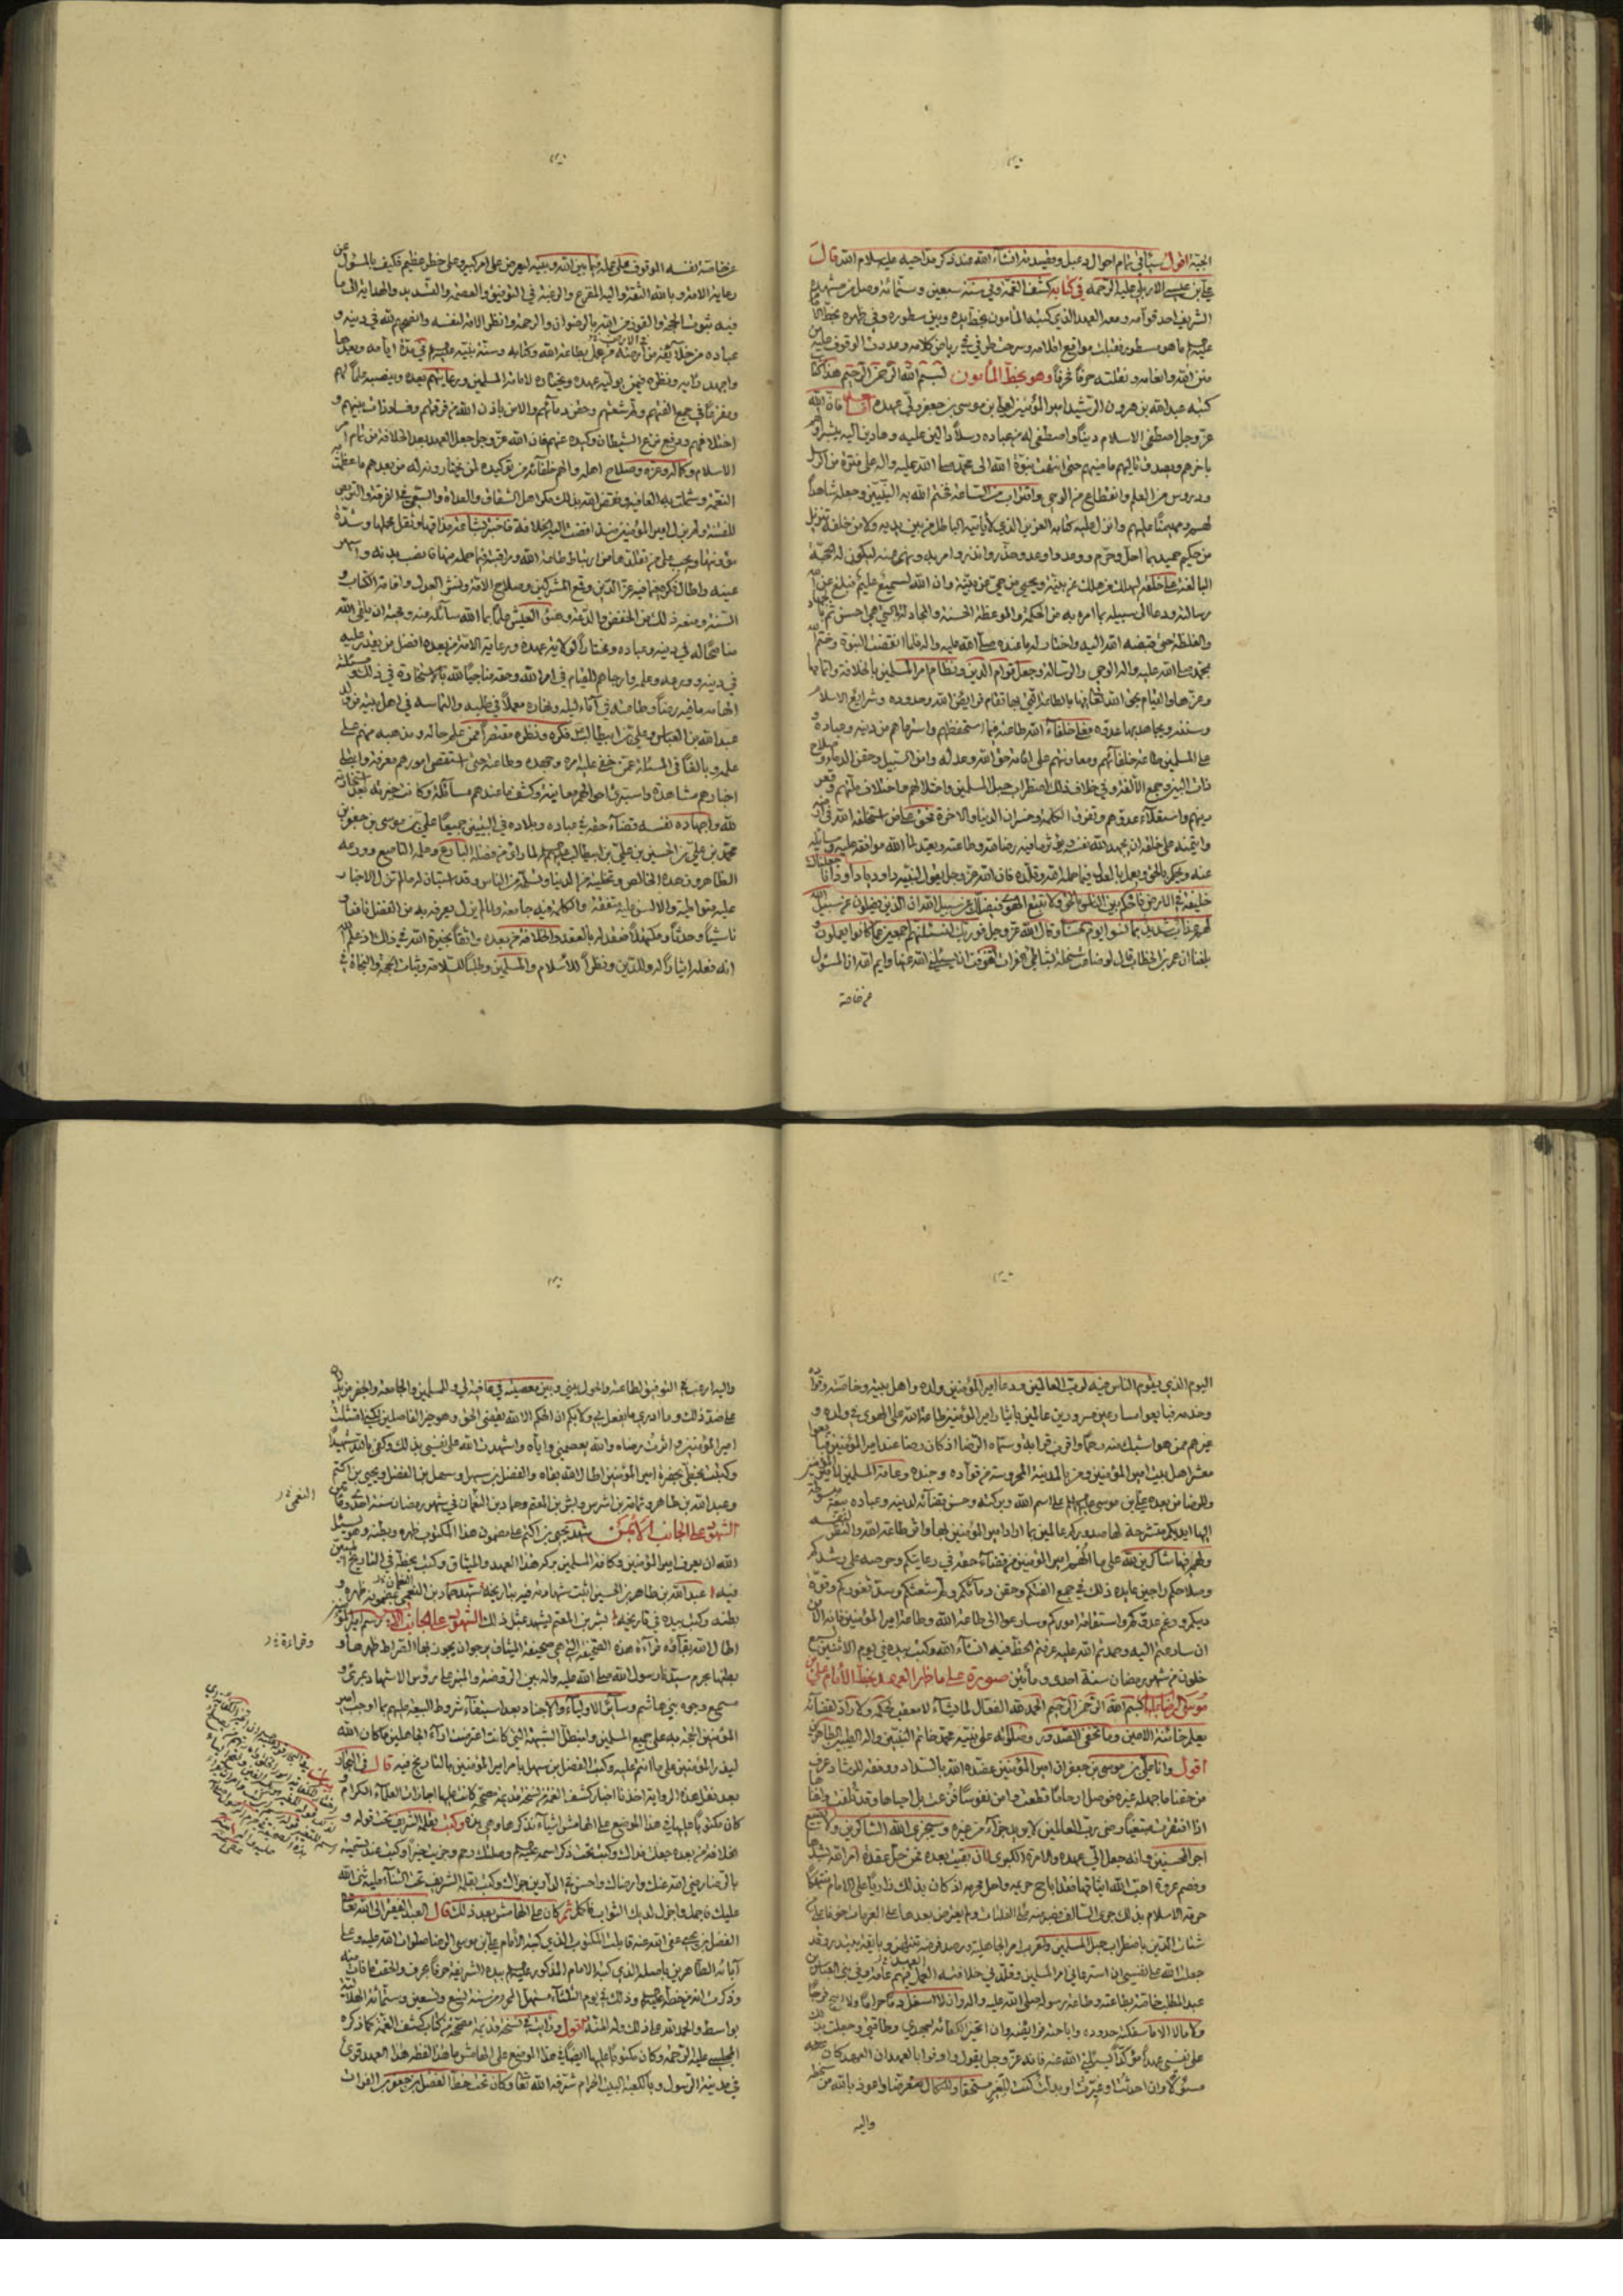 الجنة اقول سيأتي تمام احوال دعبل وقصيدته انشاء الله عند ذكر مداحيه عليه سلام الله قال
علي بن عيسى الاربلي عليه الرحمة في كتابه كشف الغمة وفي سنة سبعين وستمائة وصل من مشهده
الشريف احد قوامه ومعه العهد الذي كتبه المأمون بخط يده وبين سطوره وفي ظهره بخط الامام
عليه السلام ما هو مسطور فقبلت مواقع اقلامه وسرحت طرفي في رياض كلامه وعددت الوقوف عليه من
منن الله وانعامه ونقلته حرفا حرفا وهو بخط المأمون بسم الله الرحمن الرحيم هذا كتاب
كتبه عبد الله بن هرون الرشيد امير المؤمنين لعلي بن موسى بن جعفر ولي عهده اما بعد فان الله
عز وجل اصطفى الاسلام دينا واصطفى له من عباده رسلا دالين عليه وهادين اليه يبشر اولهم
باخرهم ويصدق تاليهم ماضيهم حتى انتهت نبوة الله الى محمد صلى الله عليه واله على فترة من الرسل
ودروس من العلم وانقطاع من الوحي واقتراب من الساعة فختم الله به النبيين وجعله شاهدا
لهم ومهيمنا عليهم وانزل عليه كتابه العزيز الذي لا يأتيه الباطل من بين يديه ولا من خلفه تنزيل
من حكيم حميد بما احل وحرم ووعد واوعد وحذر وانذر وامر به ونهى عنه ليكون له الحجة
البالغة على خلقه ليهلك من هلك عن بينة ويحيى من حي عن بينة وان الله لسميع عليم فبلغ عن الله
رسالته ودعا الى سبيله بما امره به من الحكمة والموعظة الحسنة والمجادلة بالتي هي احسن ثم بالجهاد
والغلظة حتى قبضه الله اليه واختار له ما عنده صلى الله عليه واله فلما انقضت النبوة وختم الله
بمحمد صلى الله عليه واله الوحي والرسالة وجعل قوام الدين ونظام امر المسلمين بالخلافة واتمامها
وعزها والقيام بحق الله تعالى فيها بالطاعة التي بها تقام فرايض الله وحدوده وشرايع الاسلام
وسننه ويجاهد بها عدوه فعلى خلفاء الله طاعته فيما استحفظهم واسترعاهم من دينه وعباده و
على المسلمين طاعة خلفائهم ومعاونتهم على اقامة حق الله وعدله وامن السبيل وحقن الدماء وصلاح
ذات البين وجمع الالفة وفي خلاف ذلك اضطراب حبل المسلمين واختلالهم واختلاف ملتهم وقهر
دينهم واستعلاء عدوهم وتفرق الكلمة وخسران الدنيا والاخرة فحق على من استخلفه الله في ارضه
وائتمنه على خلقه ان يجهد لله نفسه ويؤثر ما فيه رضا الله وطاعته ويعتد لما الله موافقه عليه وسائله
عنه ويحكم بالحق ويعمل بالعدل فيما حمله الله وقلده فان الله عز وجل يقول لنبيه داود يا داود انا جعلناك
خليفة في الارض فاحكم بين الناس بالحق ولا تتبع الهوى فيضلك عن سبيل الله ان الذين يضلون عن سبيل الله
لهم عذاب شديد بما نسوا يوم الحساب وقال الله عز وجل فوربك لنسئلنهم اجمعين عما كانوا يعملون و
بلغنا ان عمر بن الخطاب قال لو ضاعت سخلة بشاطئ الفرات لتخوفت ان يسئلني الله عنها وايم الله ان المسئول
عن خاصة
عن خاصة نفسه الموقوف على عمله فيما بين الله وبينه ليعرض على امر كبير وعلى خطر عظيم فكيف بالمسئول عن
رعاية الامة وبالله الثقة واليه المفزع والرغبة في التوفيق والعصمة والتسديد والهداية الى ما
فيه ثبوت الحجة والفوز من الله بالرضوان والرحمة وانظر الامة لنفسه وانصحهم لله في دينه و
عباده من خلائفه في ارضه من عمل بطاعة الله وكتابه وسنة نبيه عليه السلام في مدة ايامه وبعدها
واجهد رأيه ونظره فيمن يوليه عهده ويختاره لامامة المسلمين ورعايتهم بعده وينصبه علما لهم
ومفزعا في جمع الفتهم ولم شعثهم وحقن دمائهم والامن باذن الله من فرقتهم وفساد ذات بينهم و
اختلافهم ورفع نزغ الشيطان وكيده عنهم فان الله عز وجل جعل العهد بعد الخلافة من تمام امر
الاسلام وكماله وعزه وصلاح اهله والهم خلفاءه من توكيده لمن يختارونه له من بعدهم ما عظمت به
النعمة وشملت به العافية ونقض الله بذلك مكر اهل الشقاق والعداوة والسعي في الفرقة والتربص
للفتنة ولم يزل امير المؤمنين منذ افضت اليه الخلافة فاختبر بشاعة مذاقها وثقل محملها وشدة
مؤونتها ويجب على من تقلدها من ارتباط طاعة الله ومراقبته فيما حمله منها فانصب بدنه واسهر
عينه واطال فكره فيما فيه عز الدين وقمع المشركين وصلاح الامة ونشر العدل واقامة الكتاب و
السنة ومنعه ذلك من الخفض والدعة ومهنؤ العيش علما بما الله سائله عنه ومحبة ان يلقى الله
مناصحا له في دينه وعباده ومختارا لولاية عهده ورعاية الامة من بعده افضل من يقدر عليه
في دينه وورعه وعلمه وارجاهم للقيام في امر الله وحقه مناجيا لله بالاستخارة في ذلك ومسئلته
الهامه ما فيه رضاه وطاعته في آناء ليله ونهاره معملا في طلبه والتماسه في اهل بيته من ولد
عبد الله بن العباس وعلي بن ابيطالب فكره ونظره مقتصرا ممن علم حاله ومذهبه منهم على
علمه وبالغا في المسئلة عمن خفي عليه امره وجهده وطاقته حتى استقصى امورهم معرفة وابتلى
اخبارهم مشاهدة واستبرى احوالهم معاينة وكشف ما عندهم مسائلة وكانت خيرته بعد استخارته
لله واجهاده نفسه قضاء حقه في عباده وبلاده في البيتين جميعا علي بن موسى بن جعفر بن
محمد بن علي بن الحسين بن علي بن ابيطالب عليهم السلام لما رأى من فضله البارع وعلمه الناصع وورعه
الظاهر وزهده الخالص وتخليه من الدنيا وتسلمه من الناس وقد استبان له ما لم تزل الاخبار
عليه متواطية والالسن عليه متفقة والكلمة فيه جامعة ولما لم يزل يعرفه به من الفضل يافعا و
ناشيا وحدثا ومكتهلا فعقد له بالعقد والخلافة من بعده واثقا بخيرة الله في ذلك اذ علم الله
انه فعله ايثارا له وللدين ونظرا للاسلام والمسلمين وطلبا للسلامة وثبات الحجة والنجاة في
اليوم الذي يقوم الناس فيه لرب العالمين ودعا امير المؤمنين ولده واهل بيته وخاصته وقواده
وخدمه فبايعوا مسارعين مسرورين عالمين بايثار امير المؤمنين طاعة الله على الهوى في ولده و
غيرهم ممن هو اشبك منه رحما واقرب قرابة وسماه الرضا اذ كان رضا عند امير المؤمنين فبايعوا
معشر اهل بيت امير المؤمنين ومن بالمدينة المحروسة من قواده وجنده وعامة المسلمين لامير المؤمنين
وللرضا من بعده علي بن موسى عليهما السلام على اسم الله وبركته وحسن قضائه لدينه وعباده بيعة مبسوطة
اليها ايديكم منشرحة لها صدوركم عالمين بما اراد امير المؤمنين بها واثر طاعة الله والنظر لنفسه
ولكم فيها شاكرين لله على ما الهم امير المؤمنين من قضاء حقه في رعايتكم وحرصه على رشدكم
وصلاحكم راجين عايدة ذلك في جمع الفتكم وحقن دمائكم ولم شعثكم وسد ثغوركم وقوة
دينكم ورغم عدوكم واستقامة اموركم وسارعوا الى طاعة الله وطاعة امير المؤمنين فانه الامن
ان سارعتم اليه وحمدتم الله عليه عرفتم الحظ فيه انشاء الله وكتب بيده في يوم الاثنين لسبع
خلون من شهر رمضان سنة احدى ومأتين صورة على ما ظهر العهد بخط الامام علي بن
موسى الرضا عليه السلام بسم الله الرحمن الرحيم الحمد لله الفعال لما يشاء لا معقب لحكمه ولا راد لقضائه
يعلم خائنة الاعين وما تخفي الصدور وصلاته على نبيه محمد خاتم النبيين واله الطيبين الطاهرين
اقول وانا علي بن موسى بن جعفر ان امير المؤمنين عضده الله بالسداد ووفقه للرشاد عرف
من حقنا ما جهله غيره فوصل ارحاما قطعت وامن نفوسا فزعت بل احياها وقد تلفت واغناها
اذا افتقرت مبتغيا رضى رب العالمين لا يريد جزاء من غيره وسيجزي الله الشاكرين ولا يضيع
اجر المحسنين وانه جعل الي عهده والامرة الكبرى ان بقيت بعده فمن حل عقدة امر الله بشدها
وفصم عروة احب الله ايثاقها فقد اباح حريمه واحل محرمه اذ كان بذلك زاريا على الامام منتهكا
حرمة الاسلام بذلك جرى السالف فصبر منه على الفلتات ولم يعترض بعدها على العزمات خوفا على
شتات الدين باضطراب حبل المسلمين ولقرب امر الجاهلية ورصد فرصة تنتهز وبايقة تبتدر وقد
جعلت الله على نفسي ان استرعاني امر المسلمين وقلدني خلافته العمل فيهم عامة وفي بني العباس بن
عبد المطلب خاصة بطاعته وطاعة رسوله صلى الله عليه واله وان لا اسفك دما حراما ولا ابيح فرجا
ولا مالا الا ما سفكته حدوده واباحته فرايضه وان اتخير الكفاة جهدي وطاقتي وجعلت بذلك
على نفسي عهدا مؤكدا يسئلني الله عنه فانه عز وجل يقول واوفوا بالعهد ان العهد كان
مسؤلا وان احدثت او غيرت او بدلت كنت للغير مستحقا وللنكال متعرضا واعوذ بالله من سخطه
واليه
واليه ارغب في التوفيق لطاعته والحول بيني وبين معصيته في عافية لي وللمسلمين والجامعة والجفر يدلان
على ضد ذلك وما ادري ما يفعل بي ولا بكم ان الحكم الا لله يقضي الحق وهو خير الفاصلين لكني امتثلت
امر امير المؤمنين واثرت رضاه والله يعصمني واياه واشهدت الله على نفسي بذلك وكفى بالله شهيدا
وكتبت بخطي بحضرة امير المؤمنين اطال الله بقاه والفضل بن سهل وسهل بن الفضل ويحيى بن اكثم
وعبد الله بن طاهر وثمامة بن اشرس وبشر بن المعتمر وحماد بن النعمان في شهر رمضان سنة احدى ومأتين
الشهود على الجانب الايمن شهد يحيى بن اكثم على مضمون هذا المكتوب ظهره وبطنه وهو يسئل
الله ان يعرف امير المؤمنين وكافة المسلمين بركة هذا العهد والميثاق وكتب بخطه في التاريخ المبين
فيه عبد الله بن طاهر بن الحسين اثبت شهادته فيه بتاريخه شهد حماد بن النعمان بمضمونه ظهره و
بطنه وكتب بيده في تاريخه بشر بن المعتمر يشهد بمثل ذلك الشهود على الجانب الايسر رسم امير المؤمنين
اطال الله بقاءه قراءة هذه الصحيفة التي هي صحيفة الميثاق نرجو ان يجوز بها الصراط ظهرها و
بطنها بحرم سيدنا رسول الله صلى الله عليه واله بين الروضة والمنبر على رؤس الاشهاد بمرئ و
مسمع وجوه بني هاشم وسائر الاولياء والاجناد بعد استيفاء شروط البيعة عليهم بما اوجب امير
المؤمنين الحجة به على جميع المسلمين ولتبطل الشبهة التي كانت اعترضت اراء الجاهلين وما كان الله
ليذر المؤمنين على ما انتم عليه وكتب الفضل بن سهل بامر امير المؤمنين بالتاريخ فيه قال في البحار
بعد نقل هذه الرواية اخذنا اخبار كشف الغمة من نسخة قديمة مصححة كانت عليها اجازات العلماء الكرام و
كان مكتوبا عليها في هذا الموضع على الهامش اشياء نذكرها وهي هذه وكتب بقلمه الشريف تحت قوله و
الخلافة من بعده جعلت فداك وكتب تحت ذكر اسمه عليه السلام وصلتك رحم وجزيت خيرا وكتب عند تسميته
بالرضا رضي الله عنك وارضاك واحسن في الدارين جزاك وكتب بقلمه الشريف تحت الثناء عليه اثنى الله
عليك فاجمل واجزل لديك الثواب فاكمل ثم كان على الهامش بعد ذلك قال العبد الفقير الى الله تعالى
الفضل بن يحيى عفى الله عنه قابلت المكتوب الذي كتبه الامام علي بن موسى الرضا صلوات الله عليه وعلى
آبائه الطاهرين باصله الذي كتبه الامام المذكور عليه السلام بيده الشريفة حرفا بحرف والحقت ما فات منه
وذكرت انه من خطه عليه السلام وذلك في يوم الثلثاء مستهل المحرم من سنة تسع وتسعين وستمائة الهلالية
بواسط والحمد لله على ذلك وله المنة اقول ورأيت في نسخة قديمة مصححة من كتاب كشف الغمة كما ذكره
المجلسي عليه الرحمة وكان مكتوبا عليها ايضا في هذا الموضع على الهامش ما هذا لفظه هذا العهد قرئ
في مدينة الرسول وبالكعبة البيت الحرام شرفه الله تعالى وكان تحت خط الفضل بن جعفر بن الفرات
النعمى
وقراءة